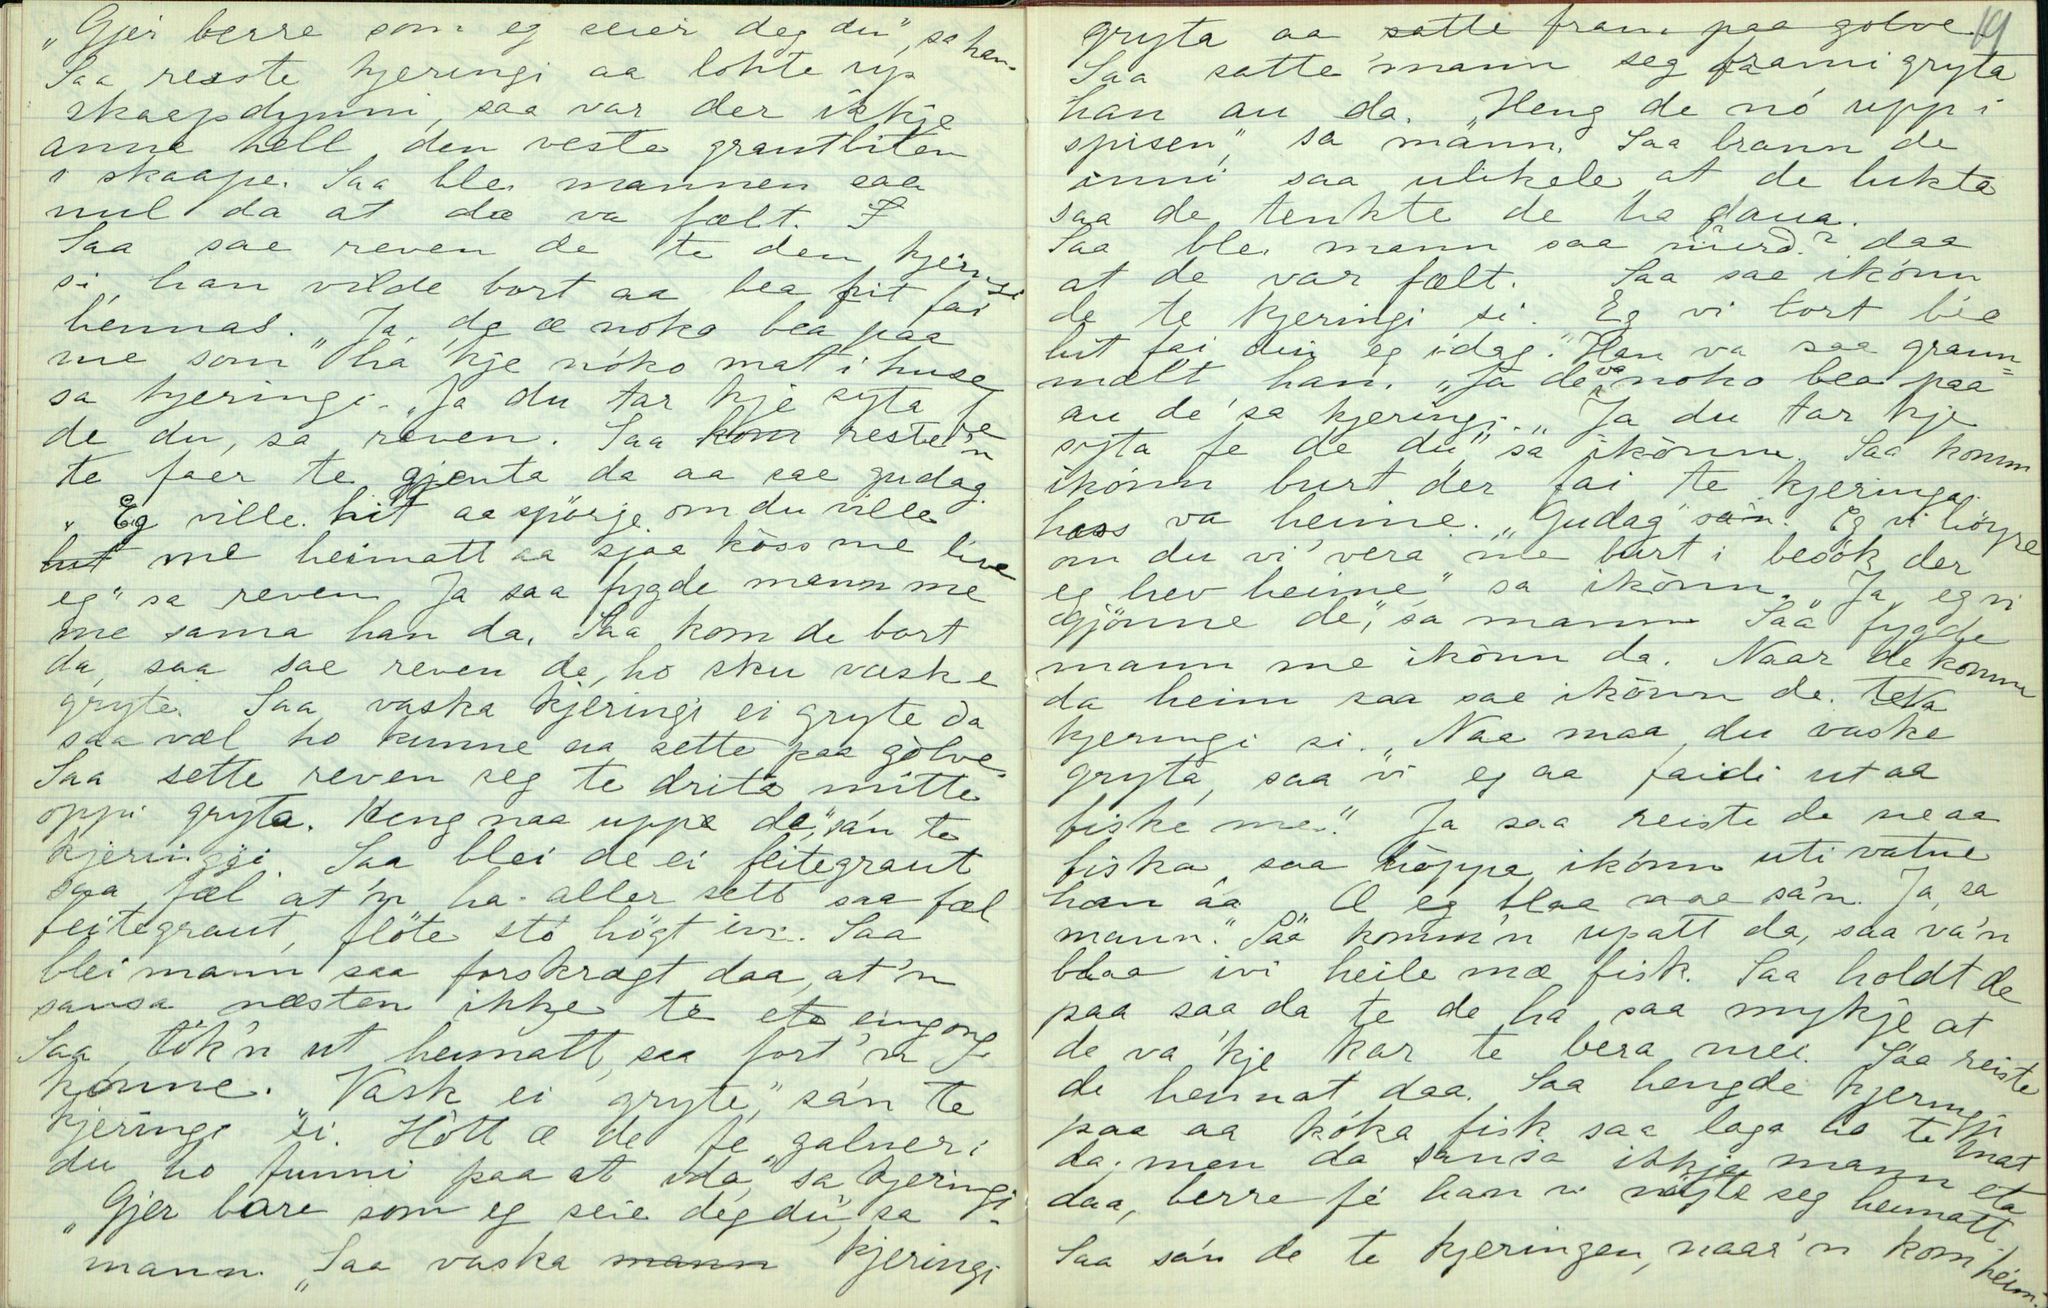 „Gjer berre som eg seier deg du", sa han.
Saa reiste kjeringi aa lohte up
skaapdynni, saa var der ikkje
anna hell den veste grautbiten
i skaape. Saa blei mannen saa
nul da at dæ va fælt.
Saa sae reven de te den kjeringi
si, han vilde bort aa bea hit fai
hennas. „Ja, dg æ noko bea paa
me som ha 'kje nóko mat i huse,
sa kjeringi. „Ja du tar kje syta fe
de du, sa reven. Saa kom reste'n
te faer te gjenta da aa sae gudag.
„Eg ville hit aa spørje om du ville
hit me heimatt aa sjaa kòss me live
eg" sa reven. Ja saa fygde mann me
me sama han da. Saa kom de bort
da, saa sae reven de, ho sku vaske
gryte. Saa vaska kjeringi ei gryte da
saa væl ho kunne aa sette paa gòlve.
Saa sette reven seg te drita mitte
oppi gryta. „Heng naa uppe de," sa'n te
kjeringji. Saa blei de ei feitegraut
saa fæl at'n ha aller sett saa fæl
feitegraut, fløte sto høgt ivi. Saa
blei mann saa forskrægt daa, at'n
sansa næsten ikkje te ete eingong.
Saa tòk'n ut heimatt, saa fort 'n
kónne. „Vask ei gryte," sa'n te
kjeringi si. Hòtt æ de fe galneri
du ho funni paa at ida, sa kjeringi.
„Gjer bare som eg seie deg du", sa
mann. „Saa vaska mann kjeringi
19
gryta aa satte fram paa golve.
Saa satte mann seg frammi gryta
han au da. „Heng de nó upp i
spisen," sa mann. Saa brann de
inni saa ulikele at de lukta
saa de tenkte de ha daua.
Saa blei mann saa daa
at de var fælt. Saa sae ikónn
de te kjeringi si. Eg vi bort bea
hit fai din eg idag." Han va saa grann=
mælt han. „Ja de va noko bea paa
au de' sa kjeringi. „Ja du tar kje
syta fe de du," sa ikónn. Saa komm
ikónn burt der fai te kjeringa
hass va heime. „Gudag" sa'n. Eg vi høyre
om du vi vera me burt i besøk der
eg hev heime," sa ikónn. „Ja, eg vi
gjønne de," sa mann. Saa fygde
mann me ikónn da. Naar de komm
da heim saa sae ikónn de te
kjeringi si. „Naa maa du vaske
gryta, saa vi eg aa faidi ut aa
fiske me." Ja saa reiste de ne aa
fiska, saa hòppa ikónn uti vatne
han aa. Æ eg blaa naa sa'n. Ja, sa
mann." Saa komm'n upatt da, saa va'n
blaa ivi heile mæ fisk. Saa holdt de
paa saa da te de ha saa mykje at
de va 'kje kar te bera mei. Saa reiste
de heimat daa. Saa hengde kjeringji
paa aa kóka fisk saa laga ho te mat
da; men da sansa ikkje mann eta
daa, berre fe han vi nøyte seg heimatt
Saa sa'n de te kjeringen, naar'n kom heim.